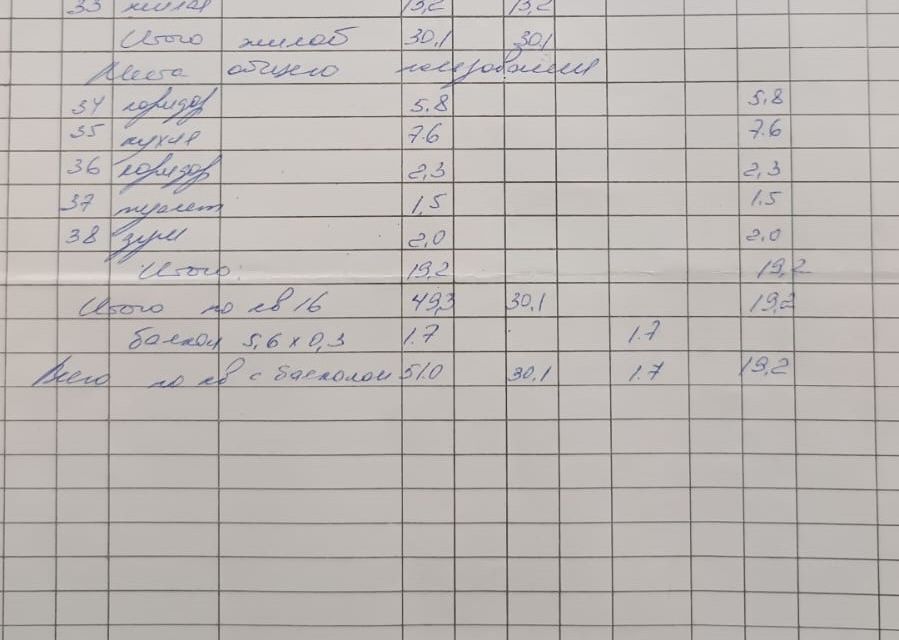 33 жилая 13,2 13,2
Итого жилой 30,1 30,1
Места общего пользования
34 коридор 5.8 5,8
35 кухня 7.6 7.6
36 коридор 2,3 2,3
37 туалет 1,5 1.5
38 душ 2,0 2.0
Итого: 19,2 19,2
Итого по кв 16 49,3 30.1 19,2
балкон 5,6 х 0,3 1.7 1.7
Всего по кв с балконом 51.0 30.1 1.7 19,2